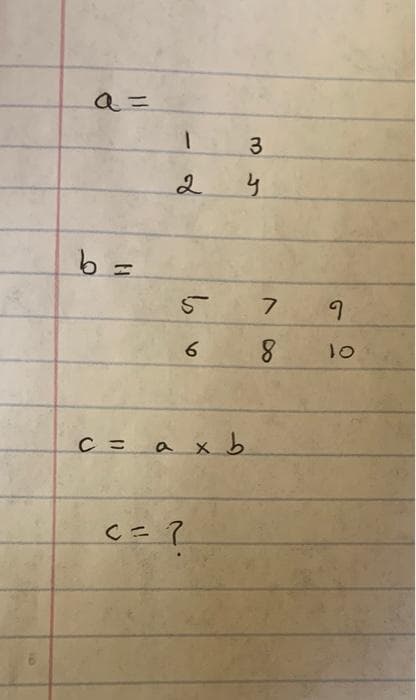 a =
1 3
2 4
b =
5 7 9
6 8 10
c = a x b
c = ?